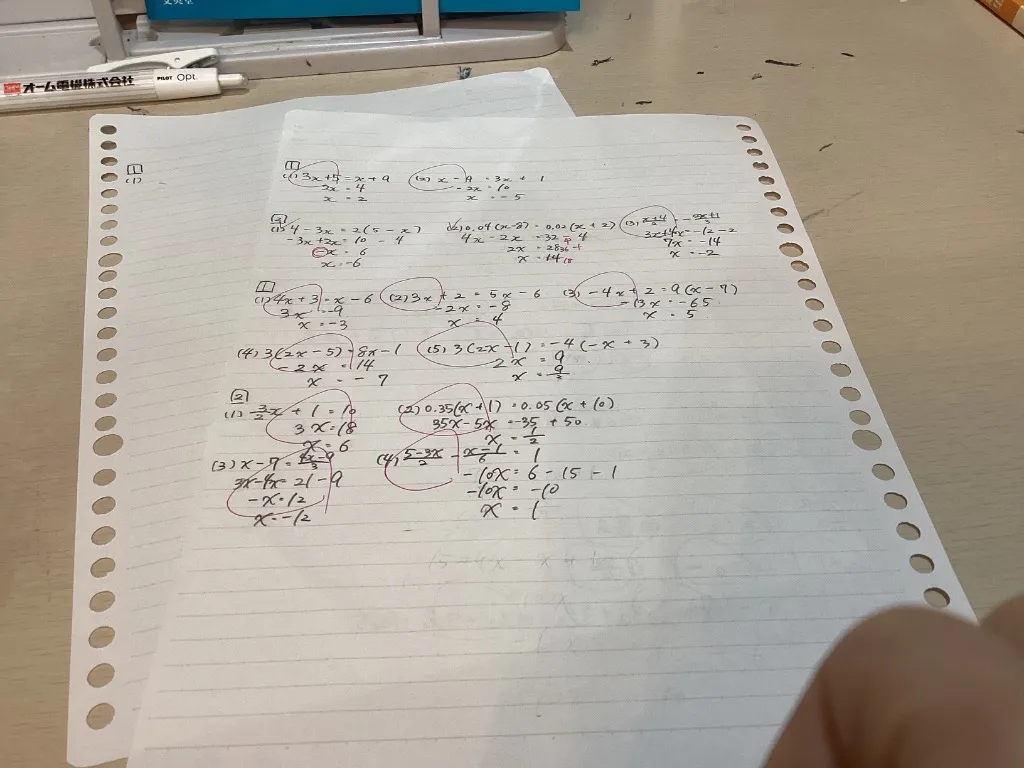 文英堂
オーム電機株式会社 PILOT Opt.
1
(1)
1
(1) 3x+5=x+9 (2) x-9=3x+1
2x=4 -2x=10
x=2 x=-5
2
(1) 4-3x=2(5-x) (2) 0.04(x-8)=0.02(x+2) (3)
-3x+2x=10-4 4x-2x=32-4 3x+4x=-12-2
x=6 2x=28 36 7x=-14
x=-6 x=14 18 x=-2
1
(1) 4x+3=x-6 (2) 3x+2=5x-6 (3) -4x+2=9(x-7)
3x=-9 -2x=-8 -13x=-65
x=-3 x=4 x=5
(4) 3(2x-5)=8x-1 (5) 3(2x-1)=-4(-x+3)
-2x=14 2x=9
x=-7 x=9/2
2
(1) 3/2x+1=10 (2) 0.35(x+1)=0.05(x+10)
3x=18 35x-5x=-35+50
x=6 x=1/2
(3) x-7= (4) (5-3x)/2-(x-1)/6=1
3x-4x=21-9 -10x=6-15-1
-x=12 -10x=-10
x=-12 x=1